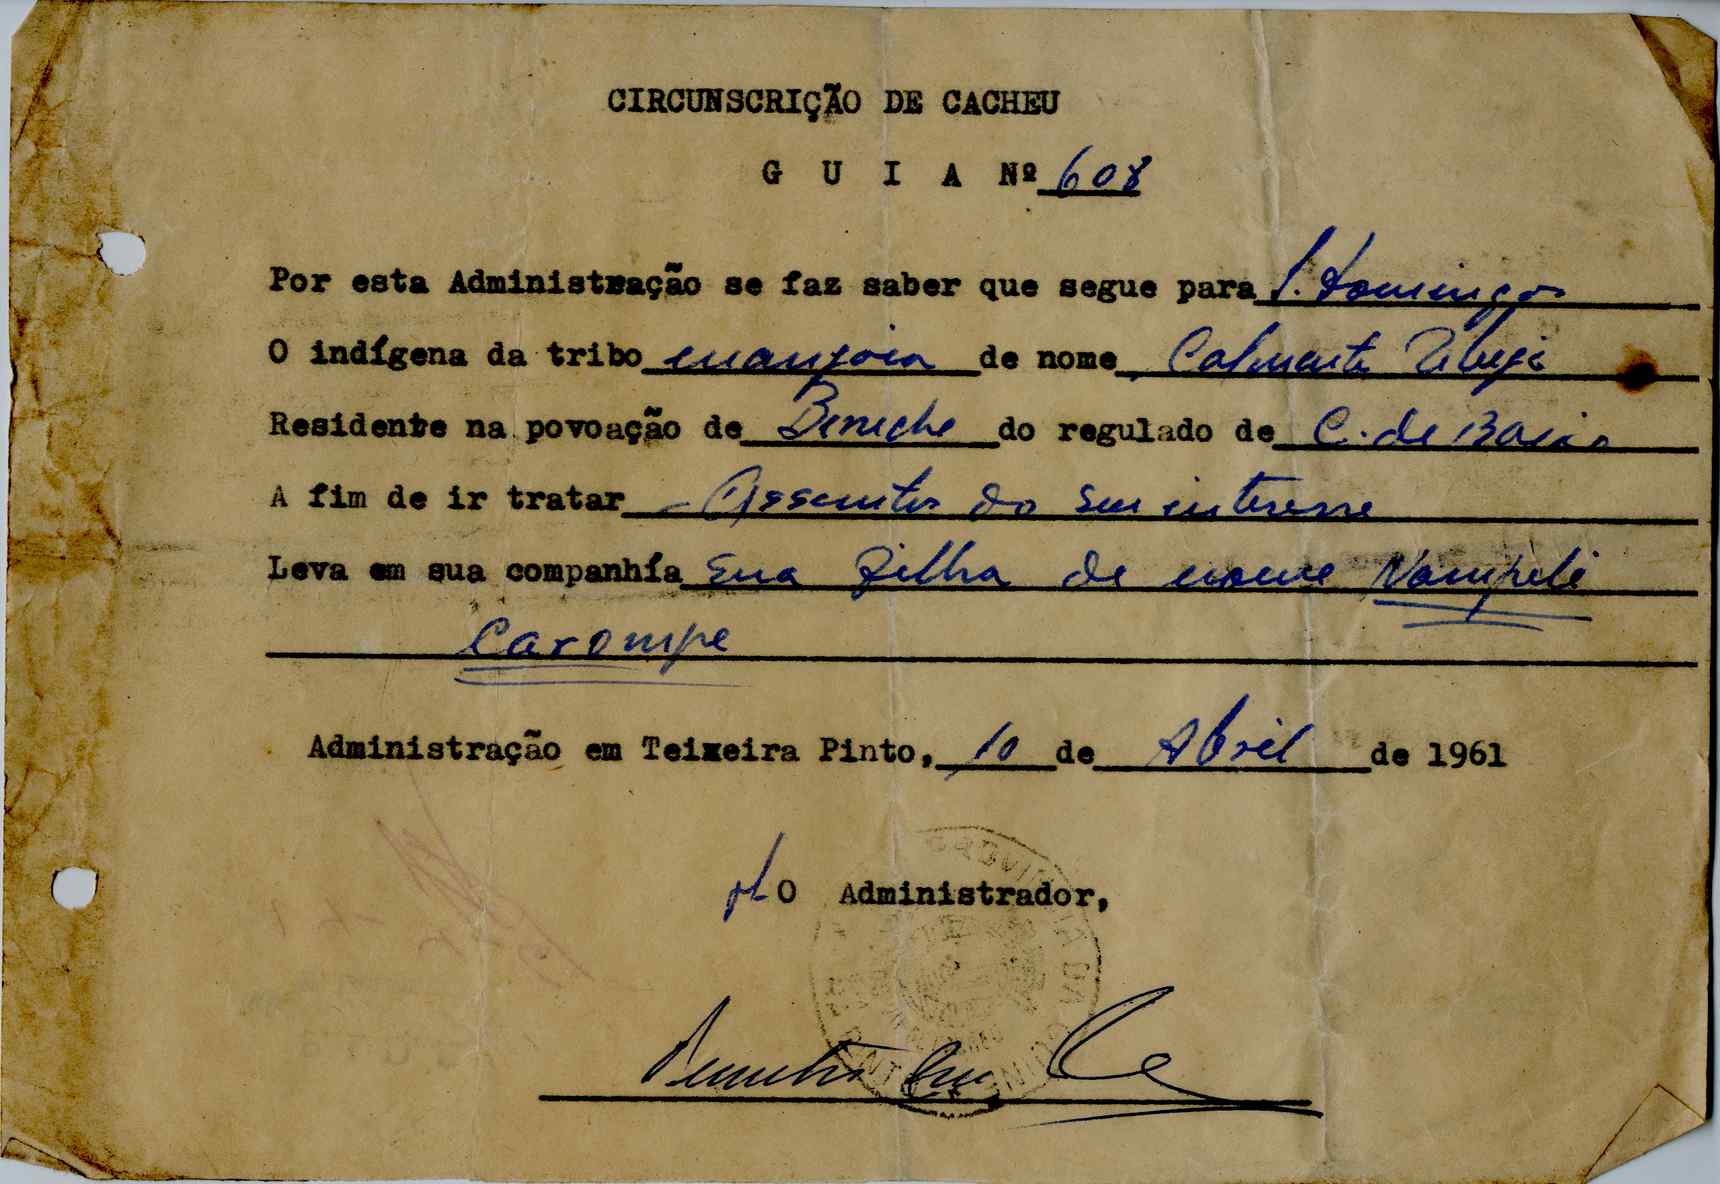 CIRCUNSCRIÇÃO DE CACHEU
G U I A Nº 608
Por esta Administração se faz saber que segue para S. Domingos
O indígena da tribo manjoca de nome
Residente na povoação de Beneche do regulado de C. de Baixo
A fim de ir tratar - Assuntos do seu interesse
Leva em sua companhía sua filha de nome Nampili
Carompe
Administração em Teixeira Pinto, 10 de Abril de 1961
O Administrador,
PROVINCIA DA GUINÉ